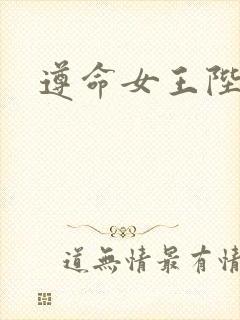 遵命女王陛
道無情最有情